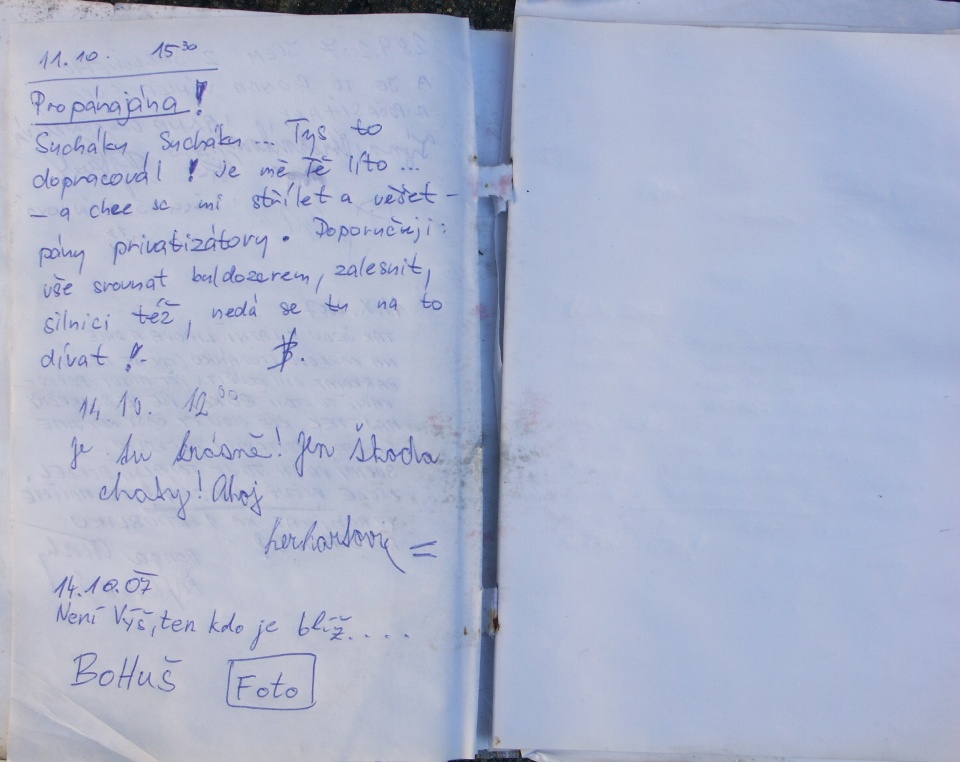 11.10. 15³⁰
Propánajána!
Sucháku, Sucháku... Tys to
dopracoval! Je mě Tě líto...
– a chce se mi střílet a věšet –
pány privatizátory. Doporučuji:
vše srovnat buldozerem, zalesnit,
silnici též, nedá se tu na to
dívat!-
14 10. 12⁰⁰
je tu krásně! Jen škoda
chaty! Ahoj
14.10.07
Není Výš, ten kdo je blíž....
BoHuš Foto